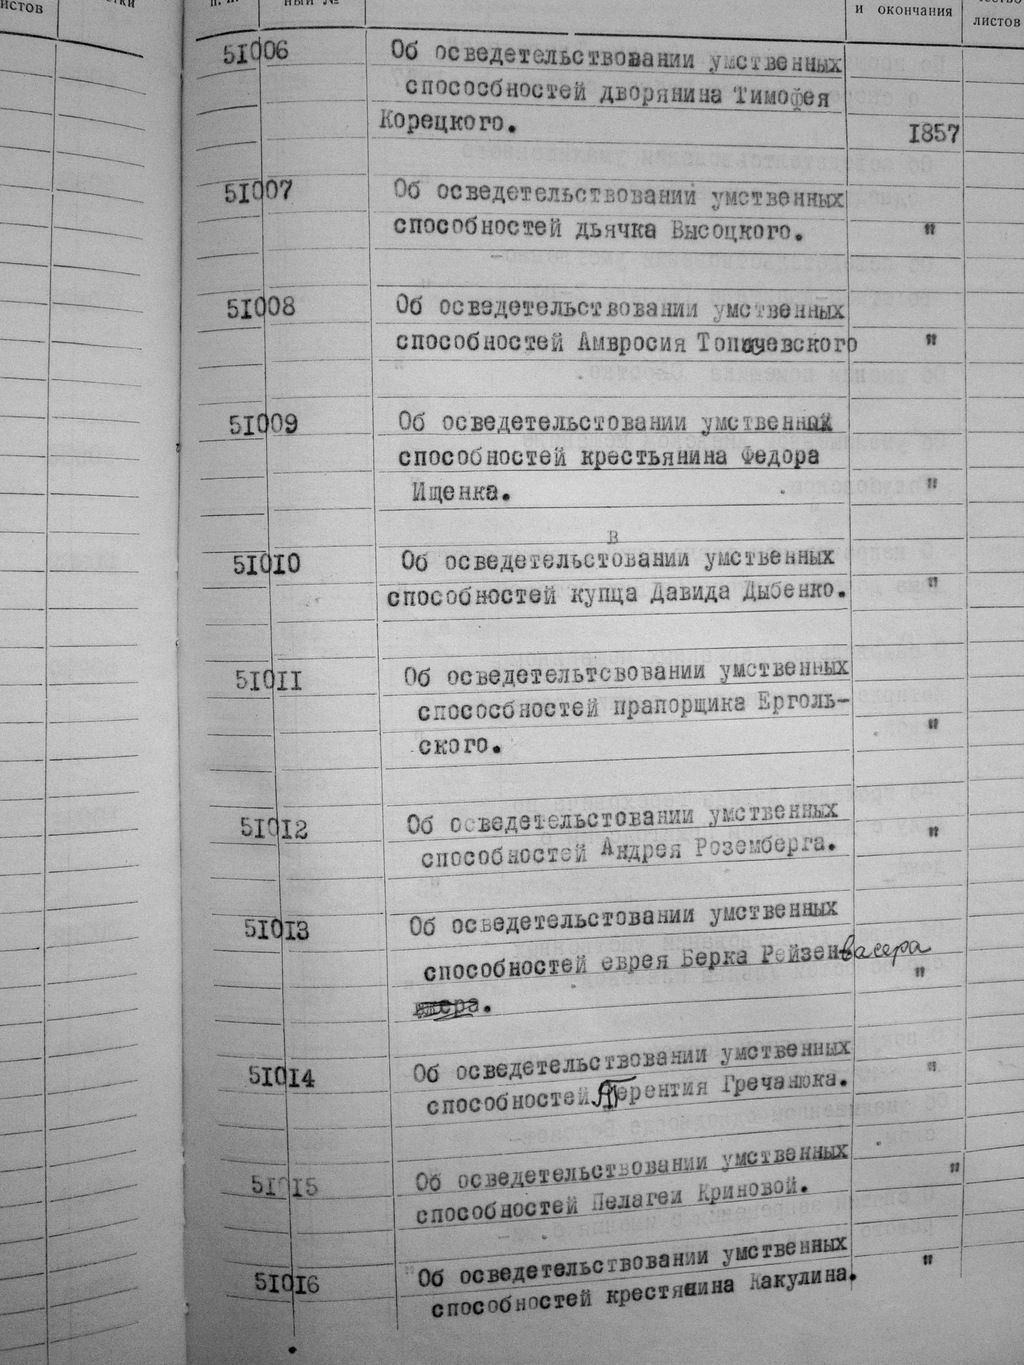 истов
тки
п. п.
ный №
и окончания
листов
51006 Об осведетельствовании умственных
спосособностей дворянина Тимофея
Корецкого.
1857
51007 Об осведетельствовании умственных
способностей дьячка Высоцкого. "
51008 Об осведетельствовании умственных
способностей Амвросия Топачевского "
51009 Об осведетельстовании умственных
способностей крестьянина Федора
Ищенка. "
в
51010 Об осведетельстовании умственных
способностей купца Давида Дыбенко. "
51011 Об осведетельтсвовании умственных
спосособностей прапорщика Ерголь-
ского. "
51012 Об осведетельстовании умственных
способностей Андрея Роземберга. "
51013 Об осведетельстовании умственных
способностей еврея Берка Рейзенвасера
"
51014 Об осведетельствовании умственных
способностей Терентия Гречанюка. "
51015 Об осведетельствовании умственных
способностей Пелагеи Криновой. "
51016 Об осведетельствовании умственных
способностей крестянина Какулина. "